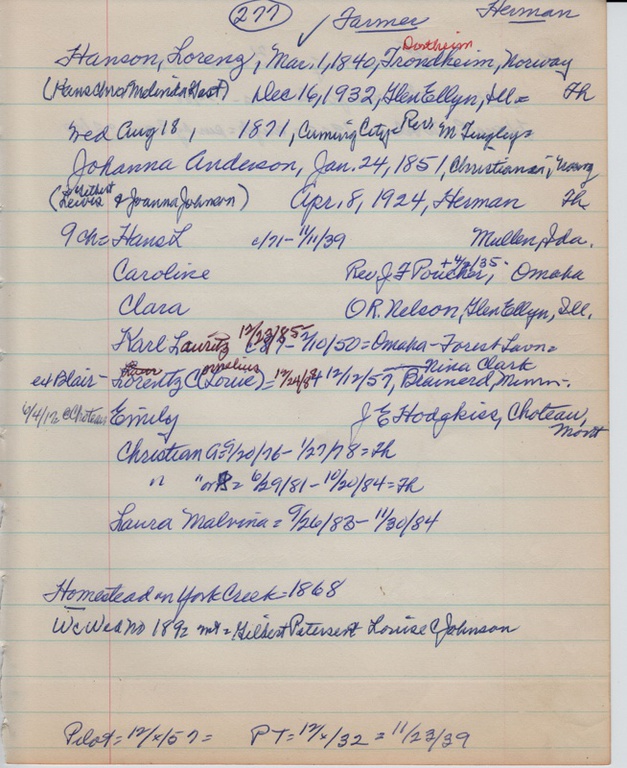 277 ✓ Farmer Herman
Hanson, Lorenz, Mar. 1, 1840, Trondheim, Norway
(Hans Melinda Gast) Dec 16, 1932, Glen Ellyn, Ill = Fh
wed Aug 18, 1871, Cuming City = Rev M Tingley =
Johanna Anderson, Jan. 24, 1851, Christiania, Norway
(Lewis & Joanna Johnson) Apr. 8, 1924, Herman Fh
9 ch = Hans L c/71 - 11/11/39 Mullen, Ida.
Caroline Rev J F Poucher, + 4/2/35 - Omaha
Clara O R. Nelson, Glen Ellyn, Ill.
Karl Lauritz 12/23/85 - 2/10/50 = Omaha - Forest Lawn =
ex Blair - Lorentz C ornelius (Louie) = 12/24/84 12/12/57, Brainerd, Minn - Nina Clark
6/4/12 @ Choteau Emily J E Hodgkiss, Choteau, Mont
Christian A = 9/20/76 - 1/27/78 = Fh
" " or B = 6/29/81 - 10/20/84 = Fh
Laura Malvina = 9/26/83 - 11/30/84
Homestead on York Creek = 1868
WcWed no 1892 mt = Gilbert Petersen & Louise C Johnson
Pilot = 12/x/57 = PT = 12/x/32 = 11/23/39